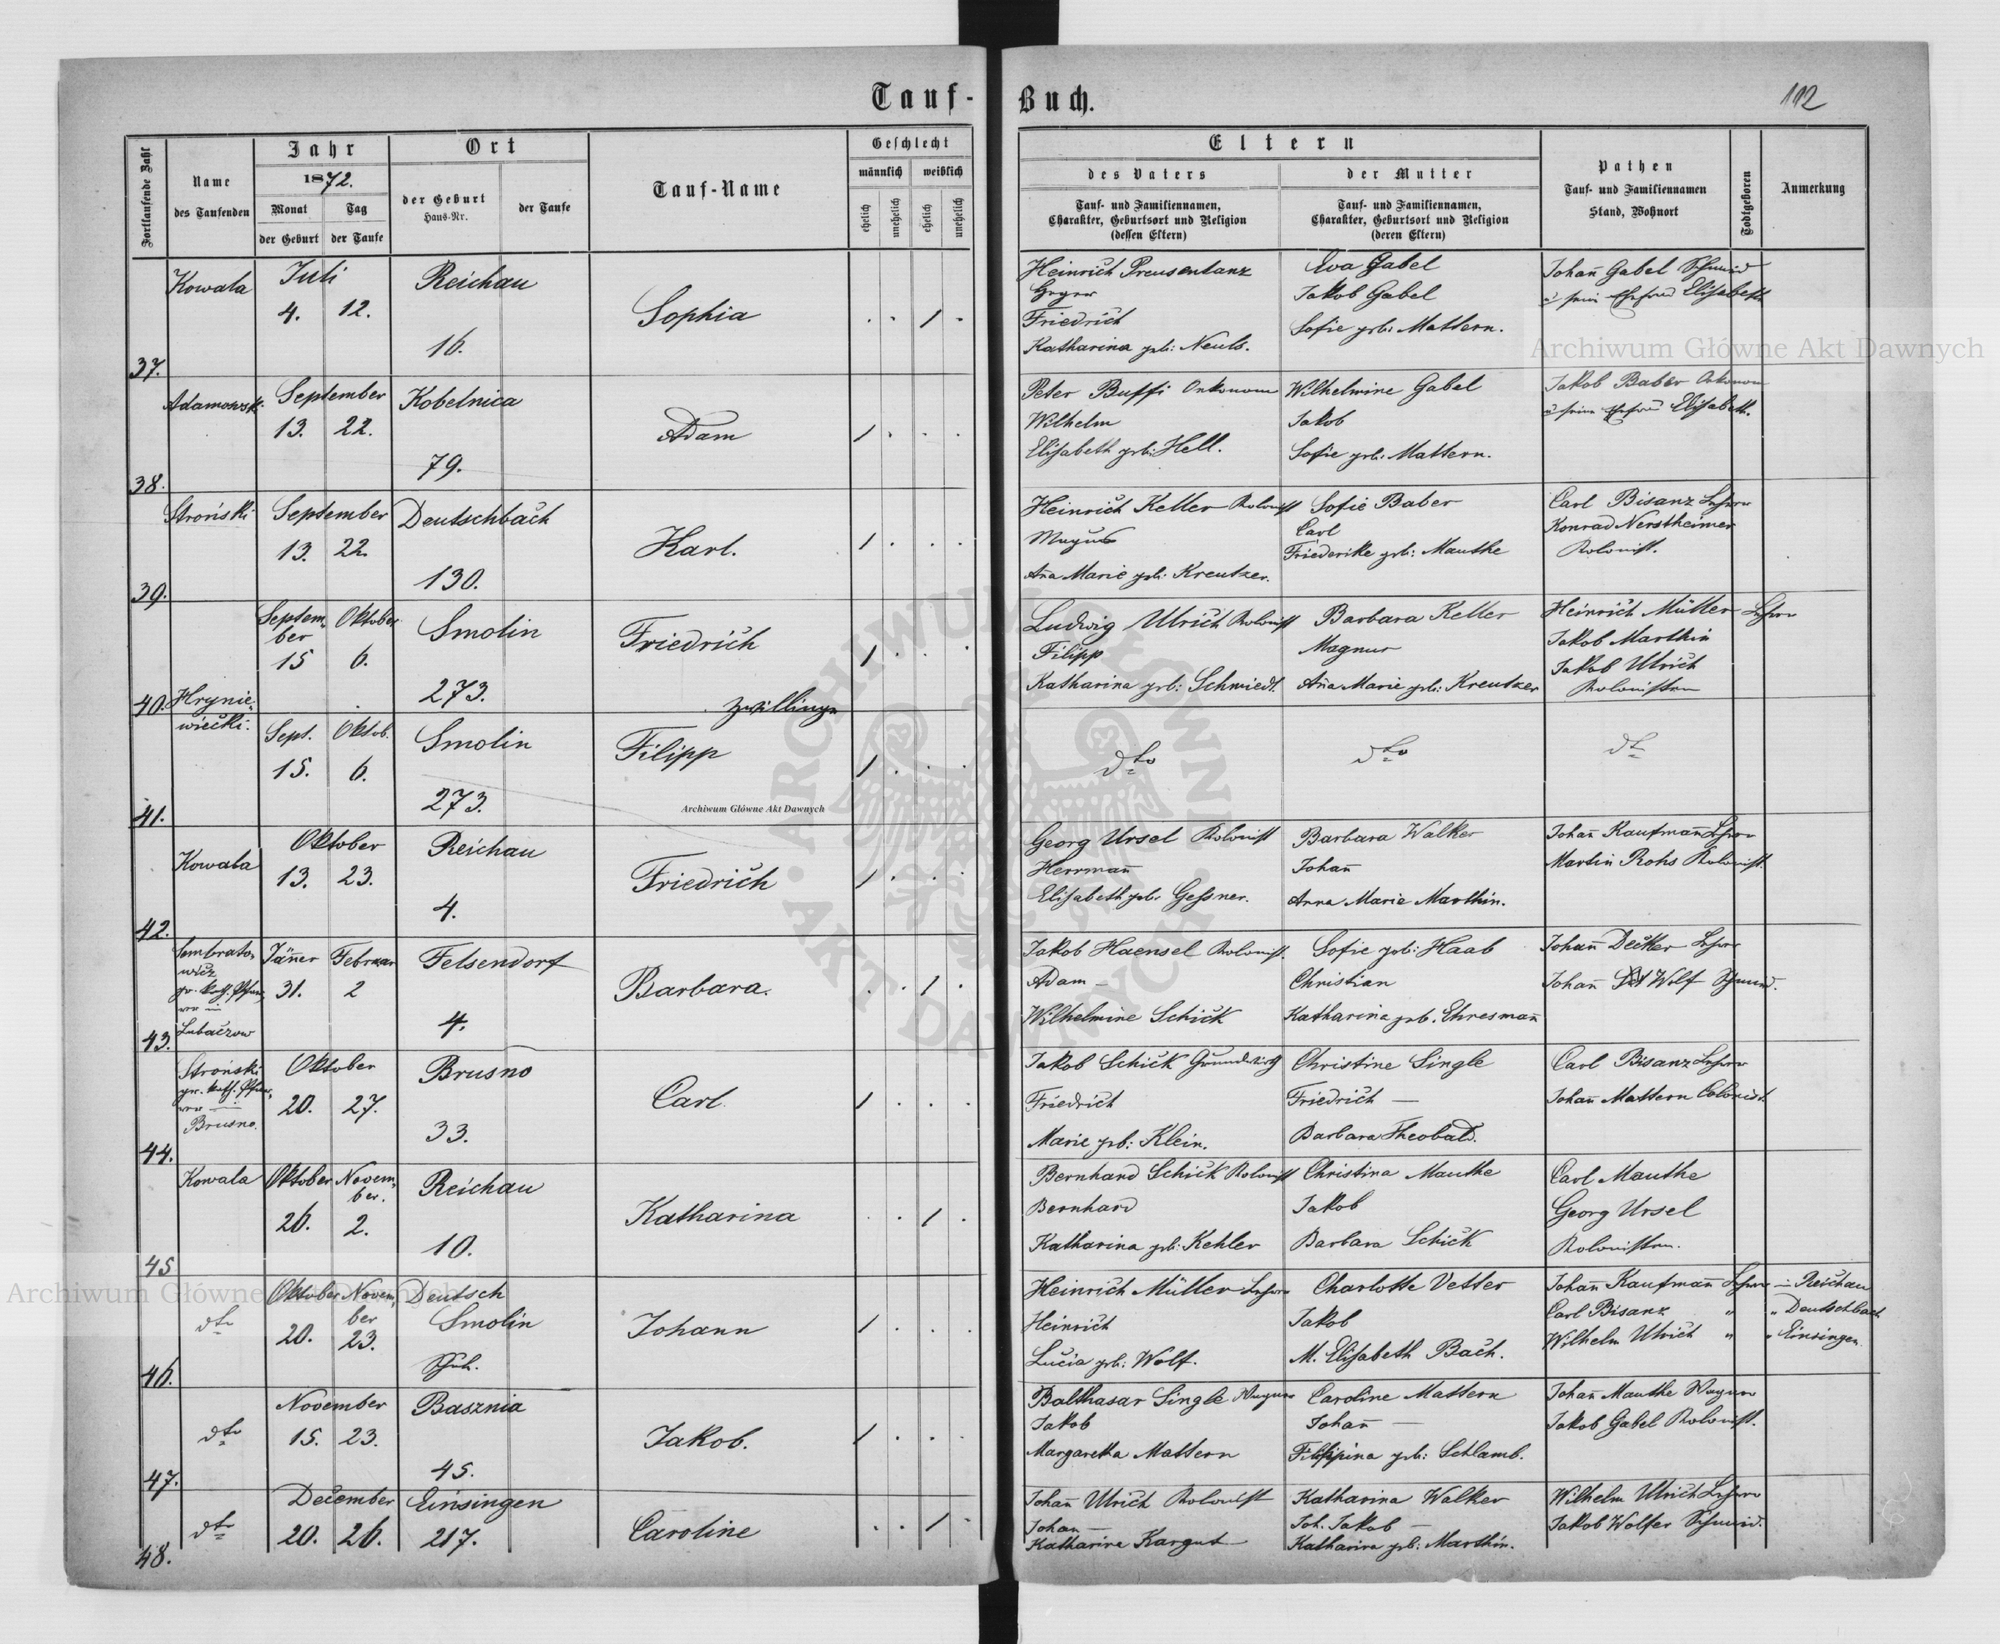 Tauf-Buch.
112
Fortlaufende Zahl
Name
des Taufenden
Jahr
1872.
Monat
Tag
der Geburt
der Taufe
Ort
der Geburt
Haus-Nr.
der Taufe
Tauf-Name
Geschlecht
männlich
weiblich
ehelich
unehelich
ehelich
unehelich
Eltern
des Vaters
Tauf- und Familiennamen,
Charakter, Geburtsort und Religion
(dessen Eltern)
der Mutter
Tauf- und Familiennamen,
Charakter, Geburtsort und Religion
(deren Eltern)
Pathen
Tauf- und Familiennamen
Stand, Wohnort
Todtgeboren
Anmerkung
37.
Kowala
Juli
4. 12.
Reichau
16.
Sophia
Heinrich Preusentanz
Friedrich
Katharina geb:
Eva Gabel
Jakob Gabel
Sofie geb: Mattern.
Johan̄ Gabel Schmid
u seine Ehefrau Elisabeth
38.
Adamowski
September
13. 22.
Kobelnica
79.
Adam
Peter Buffi Oekonom
Wilhelm
Elisabeth geb: Hell.
Wilhelmine Gabel
Jakob
Sofie geb: Mattern.
Jakob Baber Oekonom
u seine Ehefrau Elisabeth.
39.
Stroński
September
13. 22.
Deutschbach
130.
Karl.
Heinrich Keller Kolonist
Magnus
An̄a Marie geb: Kreutzer.
Sofie Baber
Carl
Friederike geb: Mauthe
Carl Bisanz Lehrer
Konrad Nerstheimer
Kolonist.
40.
Hrynie-
wiecki.
Septem-
ber
15
Oktober
6.
Smolin
273.
Friedrich
Zwillinge
Ludwig Ulrich Kolonist
Filipp
Katharina geb: Schmiedt.
Barbara Keller
Magnus
An̄a Marie geb: Kreutzer
Heinrich Müller Lehrer
Jakob Marthin
Jakob Ulrich
Kolonisten
41.
Sept. Oktob.
15. 6.
Smolin
273.
Filipp
dto
dto
dto
42.
Kowala
Oktober
13. 23.
Reichau
4.
Friedrich
Georg Ursel Kolonist
Herrman̄
Elisabeth geb: Gessner.
Barbara Walker
Johan̄
Anna Marie Marthin.
Johan̄ Kaufman̄ Lehrer
Martin Rohs Kolonist.
43.
Sembrato-
wicz
gr. kath. Pfar-
rer in
Lubaczow
Jän̄er Februar
31. 2
Felsendorf
4.
Barbara.
Jakob Haensel Kolonist.
Adam
Wilhelmine Schick
Sofie geb: Haab
Christian
Katharina geb. Ehresman̄
Johan̄ Decker Lehrer
Johan̄ Wolf Schmid.
44.
Stroński
gr. kath. Pfar-
rer in
Brusno.
Oktober
20. 27.
Brusno
33.
Carl.
Jakob Schick Grundwirth
Friedrich
Marie geb: Klein.
Christine Single
Friedrich
Barbara Theobald.
Carl Bisanz Lehrer
Johan̄ Mattern Colonist.
45
Kowala
Oktober Novem-
ber.
26. 2.
Reichau
10.
Katharina
Bernhard Schick Kolonist
Bernhard
Katharina geb: Kehler
Christina Mauthe
Jakob
Barbara Schick
Carl Mauthe
Georg Ursel
Kolonisten.
46.
dto
Oktober Novem-
ber
20. 23.
Deutsch
Smolin
Schule.
Johann
Heinrich Müller Lehrer
Heinrich
Lucia geb: Wolf.
Charlotte Vetter
Jakob
M. Elisabeth Bach.
Johan̄ Kaufman̄ Lehrer in Reichau
Carl Bisanz " " Deutschbach
Wilhelm Ulrich " " Einsingen
47.
dto
November
15. 23.
Basznia
45.
Jakob.
Balthasar Single Wagner
Jakob
Margaretha Mattern
Caroline Mattern
Johan̄
Filippina geb: Schlamb.
Johan̄ Mauthe Wagner
Jakob Gabel Kolonist.
48.
dto
December
20. 26.
Einsingen
217.
Caroline
Johan̄ Ulrich Kolonist
Johan
Katharina Kargus
Katharina Walker
Joh. Jakob
Katharina geb: Marthin.
Wilhelm Ulrich Lehrer
Jakob Wolfer Schmid.
Archiwum Główne Akt Dawnych
Archiwum Główne Akt Dawnych
Archiwum Główne Akt Dawnych
ARCHIWUM GŁÓWNE AKT DAWNYCH